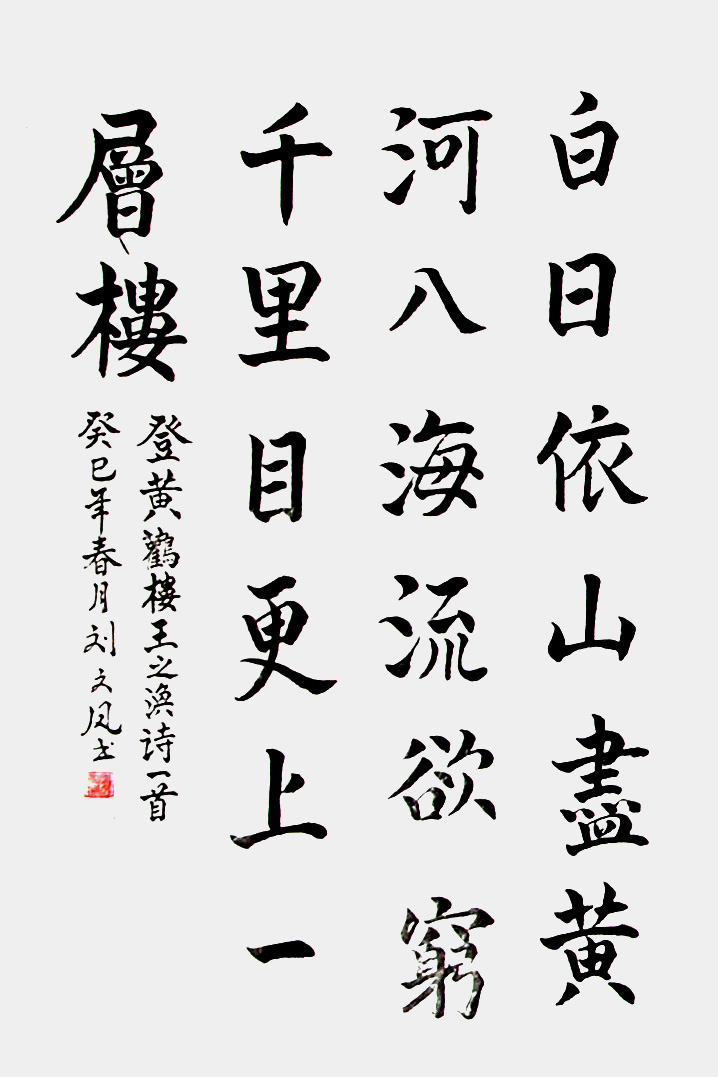 白日依山盡黄
河八海流欲窮
千里目更上一
層樓
登黄鶴樓王之渙诗一首
癸巳年春月刘文凤书